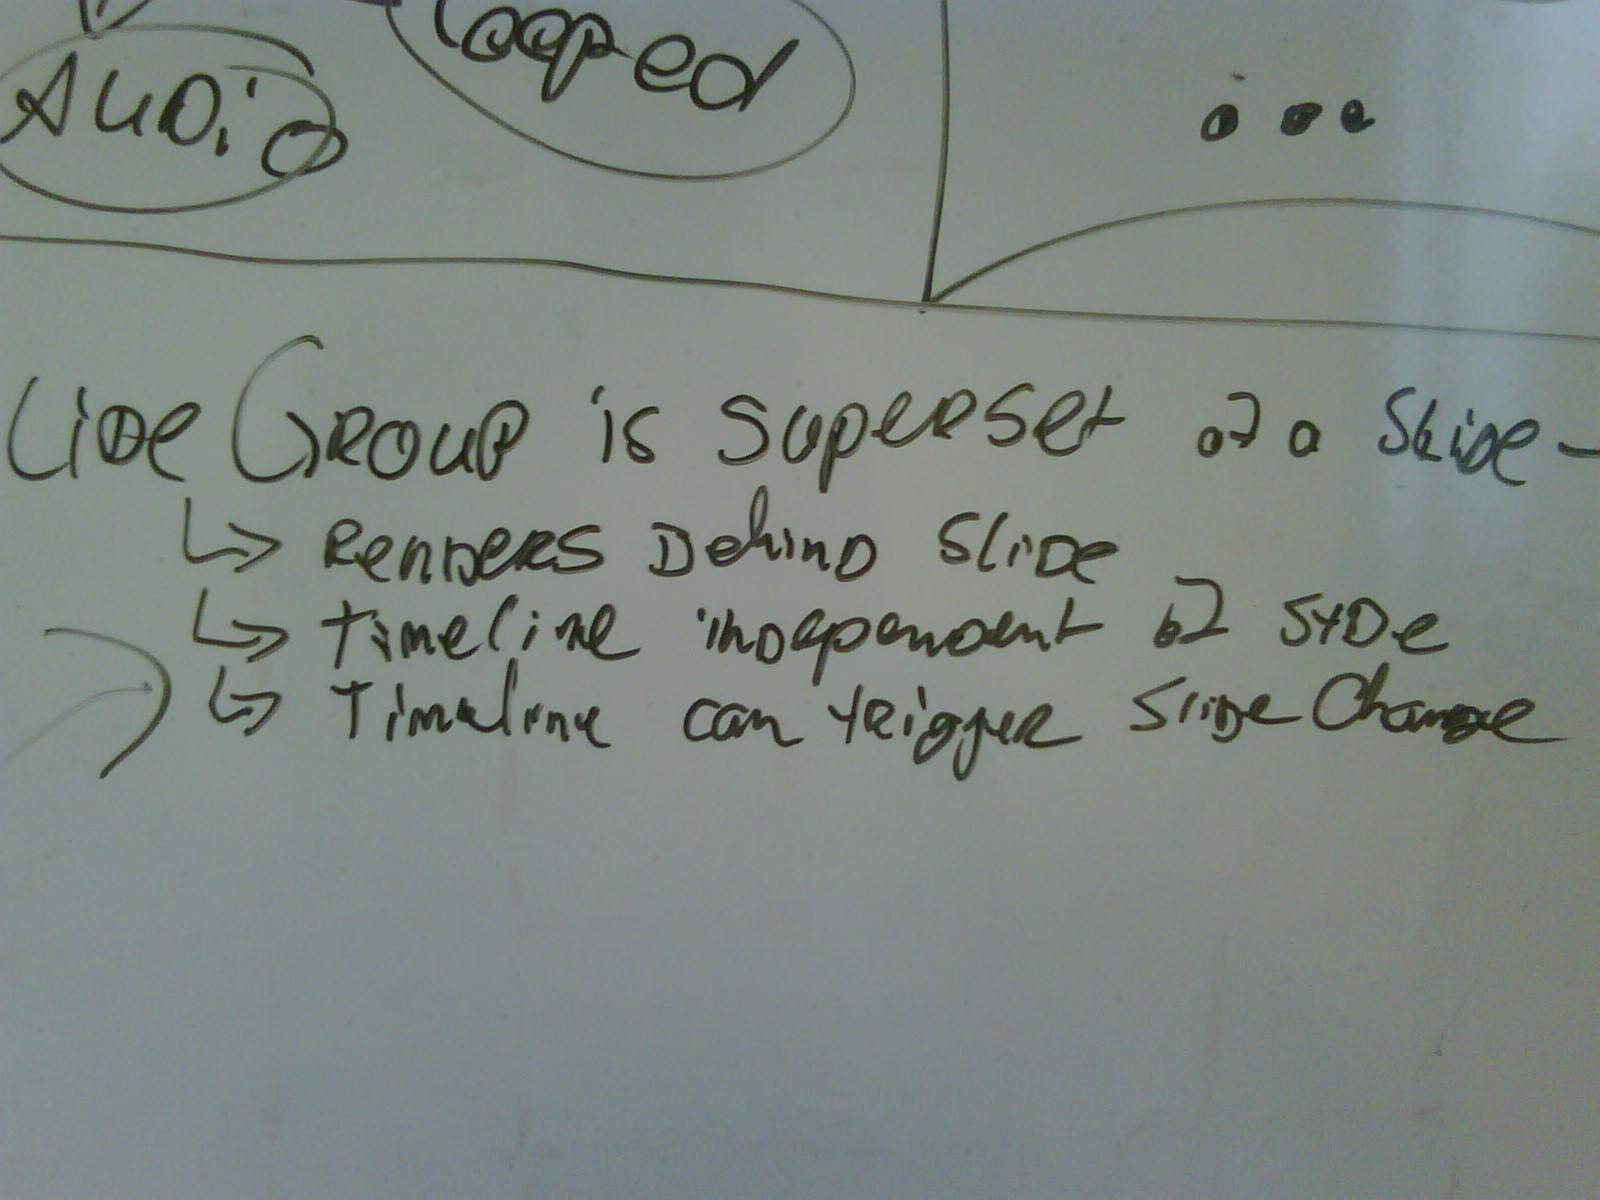 Audio
Looped
Slide Group is superset of a Slide -
Renders Behind Slide
Timeline independent of Slide
Timeline can trigger Slide Change